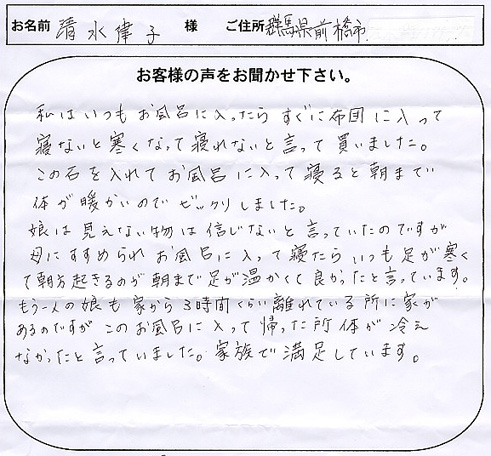 お名前 清水律子 様 ご住所 群馬県前橋市
お客様の声をお聞かせ下さい。
私はいつもお風呂に入ったらすぐに布団に入って
寝ないと寒くなって寝れないと言って買いました。
この石を入れてお風呂に入って寝ると朝まで
体が暖かいのでビックリしました。
娘は見えない物は信じないと言っていたのですが
母にすすめられお風呂に入って寝たらいつも足が寒く
て朝方起きるのが朝まで足が温かくて良かったと言っています。
もう一人の娘も家から3時間くらい離れている所に家が
あるのですがこのお風呂に入って帰った所体が冷え
なかったと言っていました。家族で満足しています。